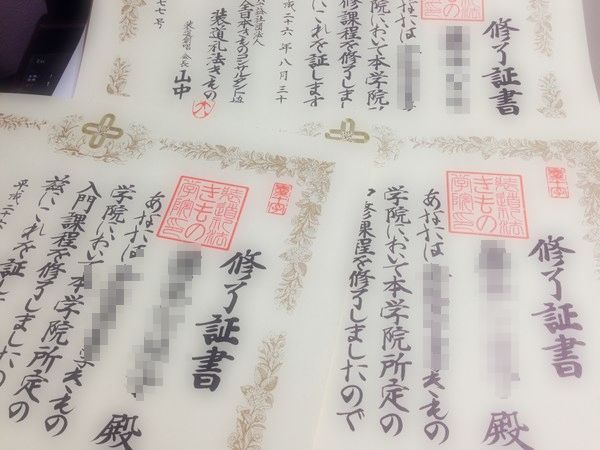 修了証書
あなたは
学院において本学院
修課程を修了しまし
にこれを証します
成二十六年八月三十
社団法人
全日本きものコンサルタント
装道礼法きもの
会長 山中
七七号
修了証書
殿
装道礼法
きもの
学院印
あなたは きもの
学院において本学院所定の
入門課程を修了しましたの
茲にこれを証し
平成二
修了証書
殿
装道礼法
きもの
学院印
あなたは きもの
学院において本学院所定の
修課程を修了しましたので